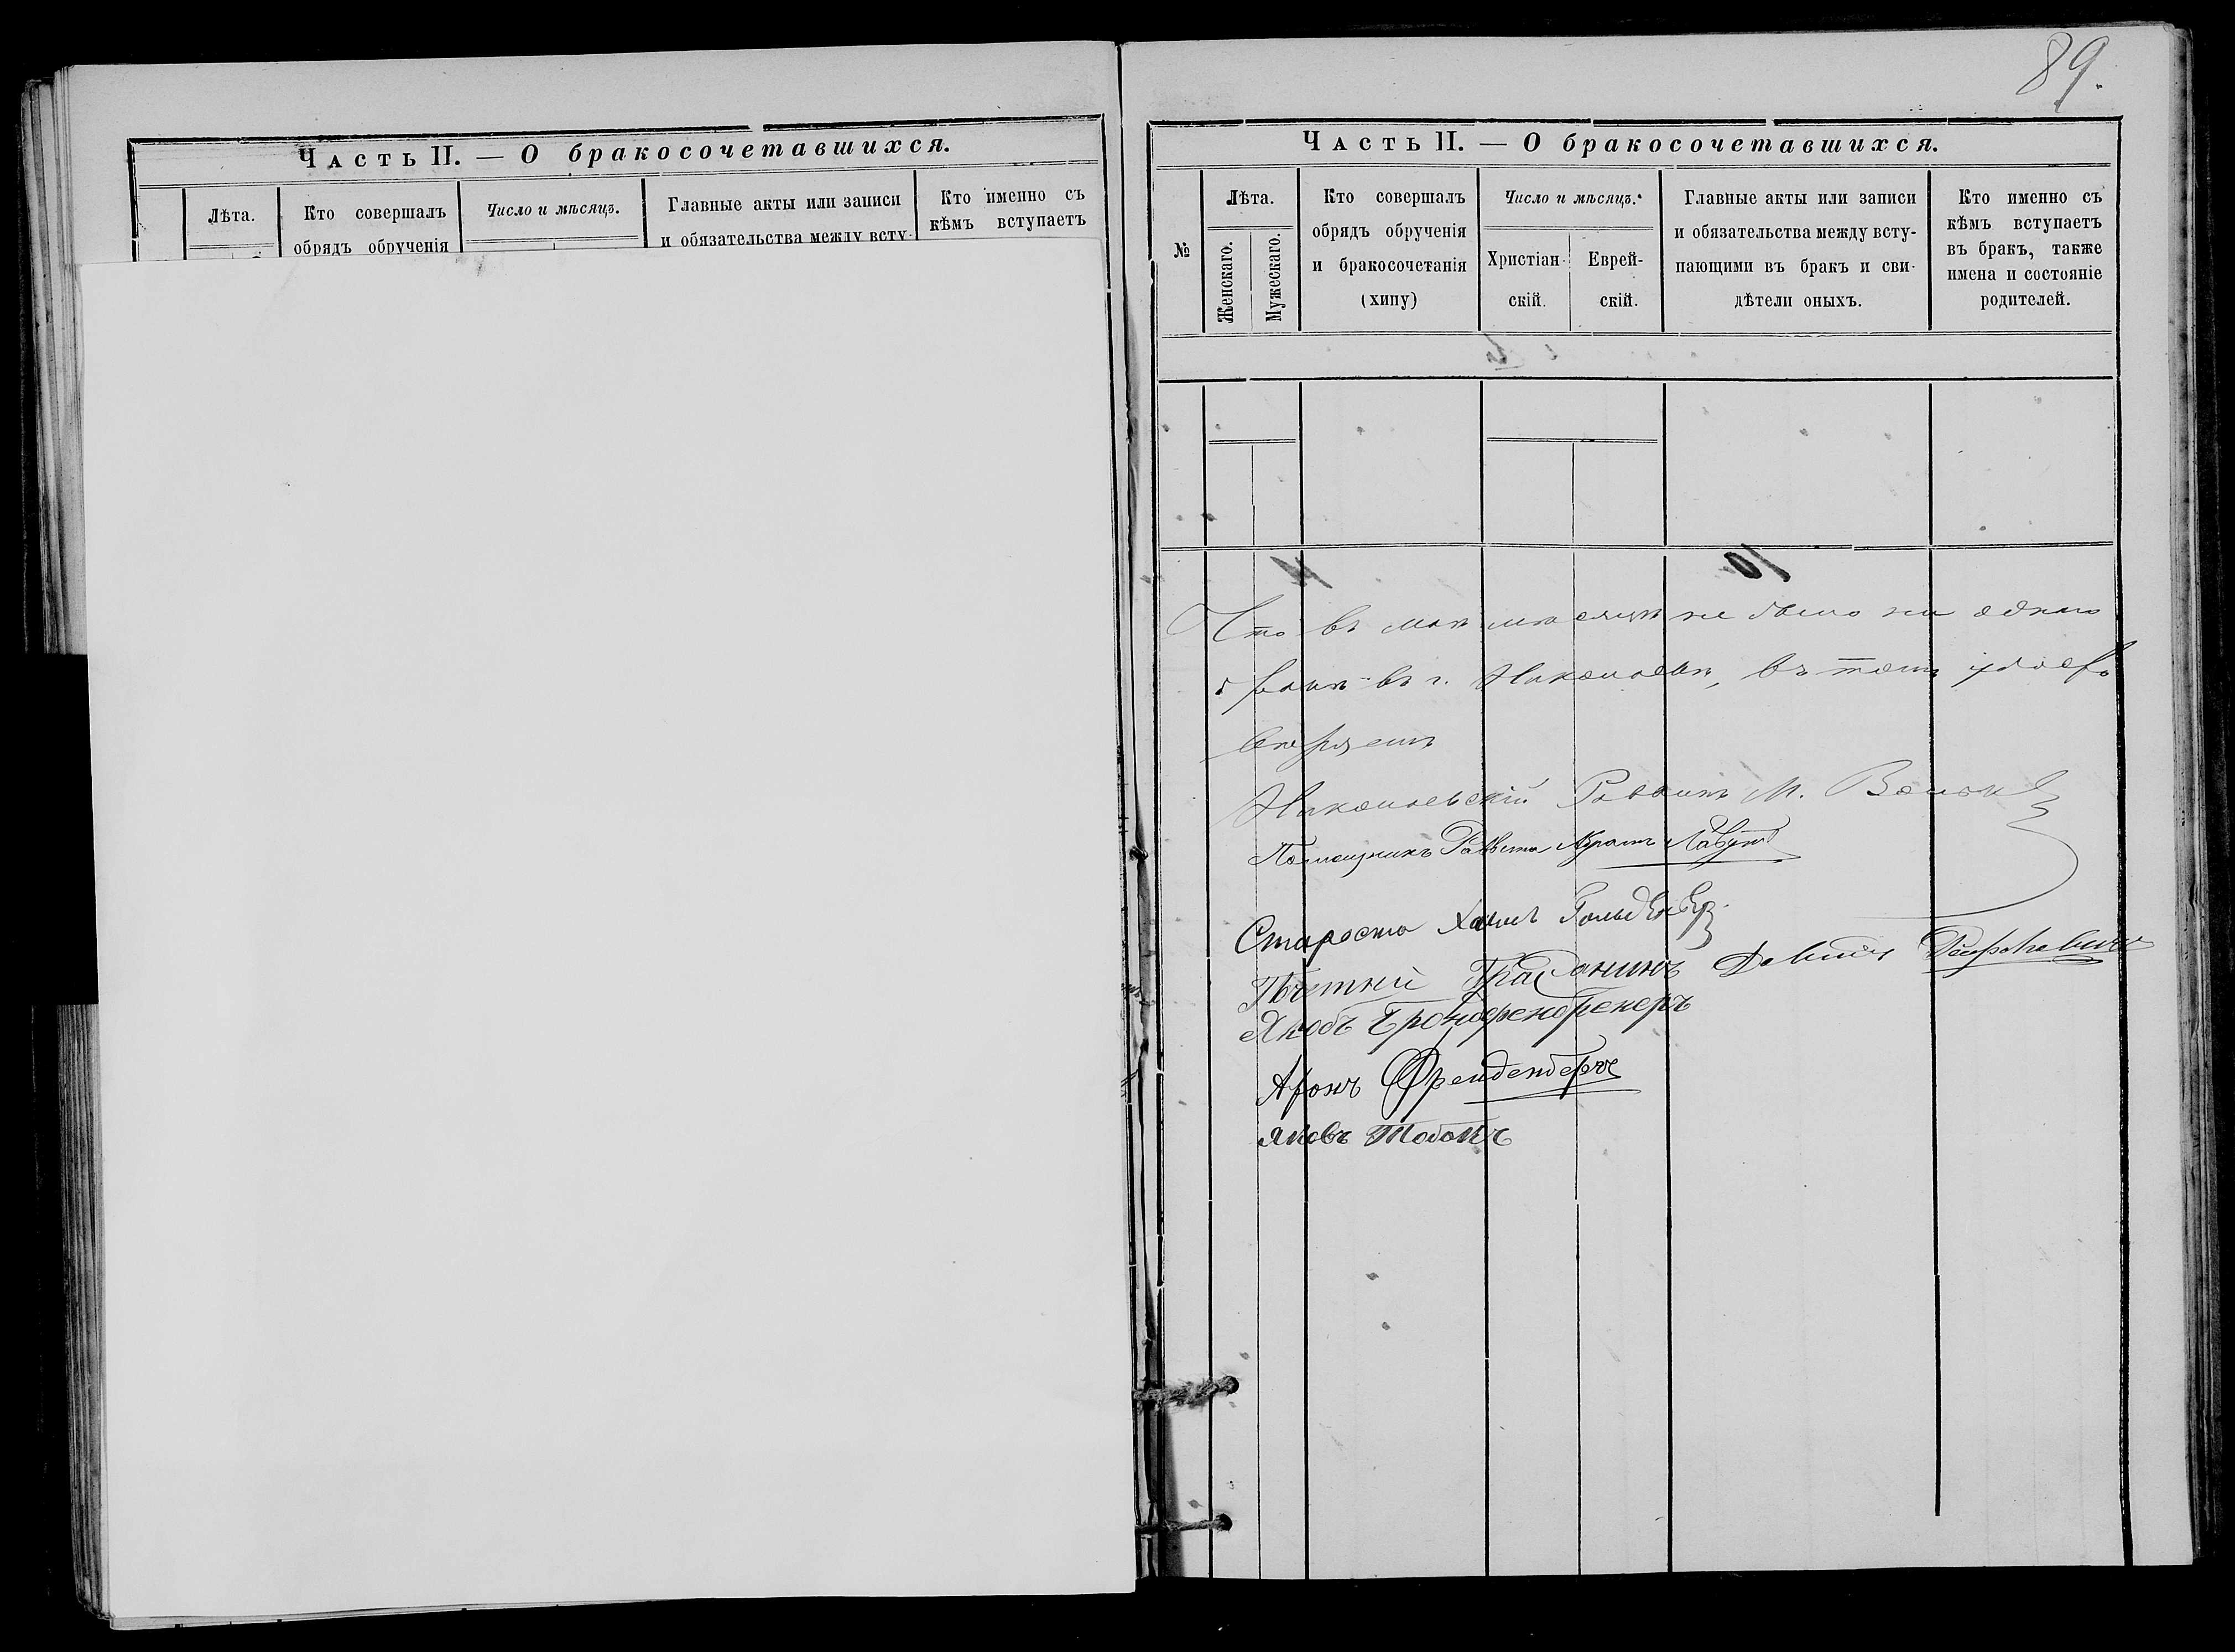 Часть II. — О бракосочетавшихся.
Лѣта.
Кто совершалъ
обрядъ обрученія
Число и мѣсяцъ.
Главные акты или записи
и обязательства между всту-
Кто именно съ
кѣмъ вступаетъ
89.
Часть II. — О бракосочетавшихся.
№
Лѣта.
Женскаго.
Мужескаго.
Кто совершалъ
обрядъ обрученія
и бракосочетанія
(хипу)
Число и мѣсяцъ.
Христіан-
скій.
Еврей-
скій.
Главные акты или записи
и обязательства между всту-
пающими въ бракъ и сви-
дѣтели оныхъ.
Кто именно съ
кѣмъ вступаетъ
въ бракъ, также
имена и состояніе
родителей.
Что въ маѣ мѣсяцѣ не было ни одного
брака въ г. Николаевѣ, въ томъ удосто
вѣряемъ
Николаевскій Раввинъ М.
Помощникъ Раввина Абрамъ
Староста Хаимъ
Гражданинъ Давидъ
Якобъ
Аронъ Фрейденбергъ
Яковъ